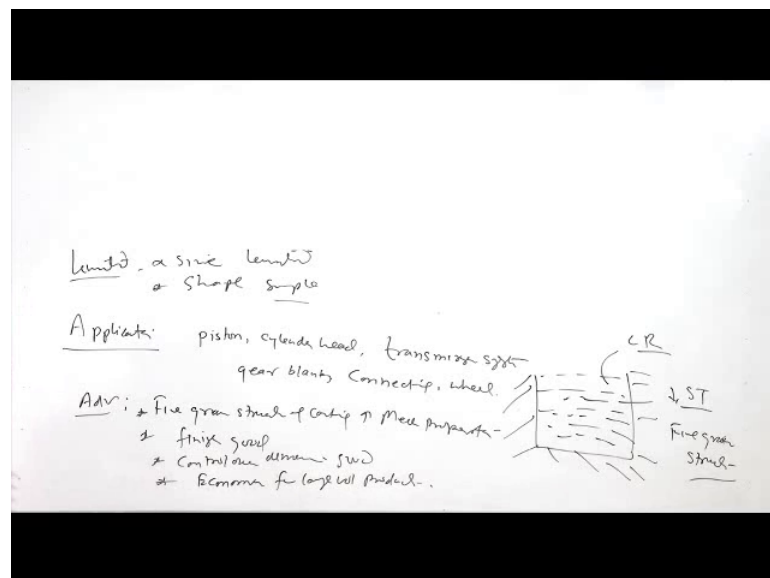 Limit. * size limited
* Shape simple
Application: piston, cylinder head, transmission system
gear blanks, connecting, wheel.
Adv: * Fine grain struct of casting ↑ Mech properties
* finish good
* Control over dimen. good
* Economic for large vol product.
CR
↓ ST
Fine grain
struct